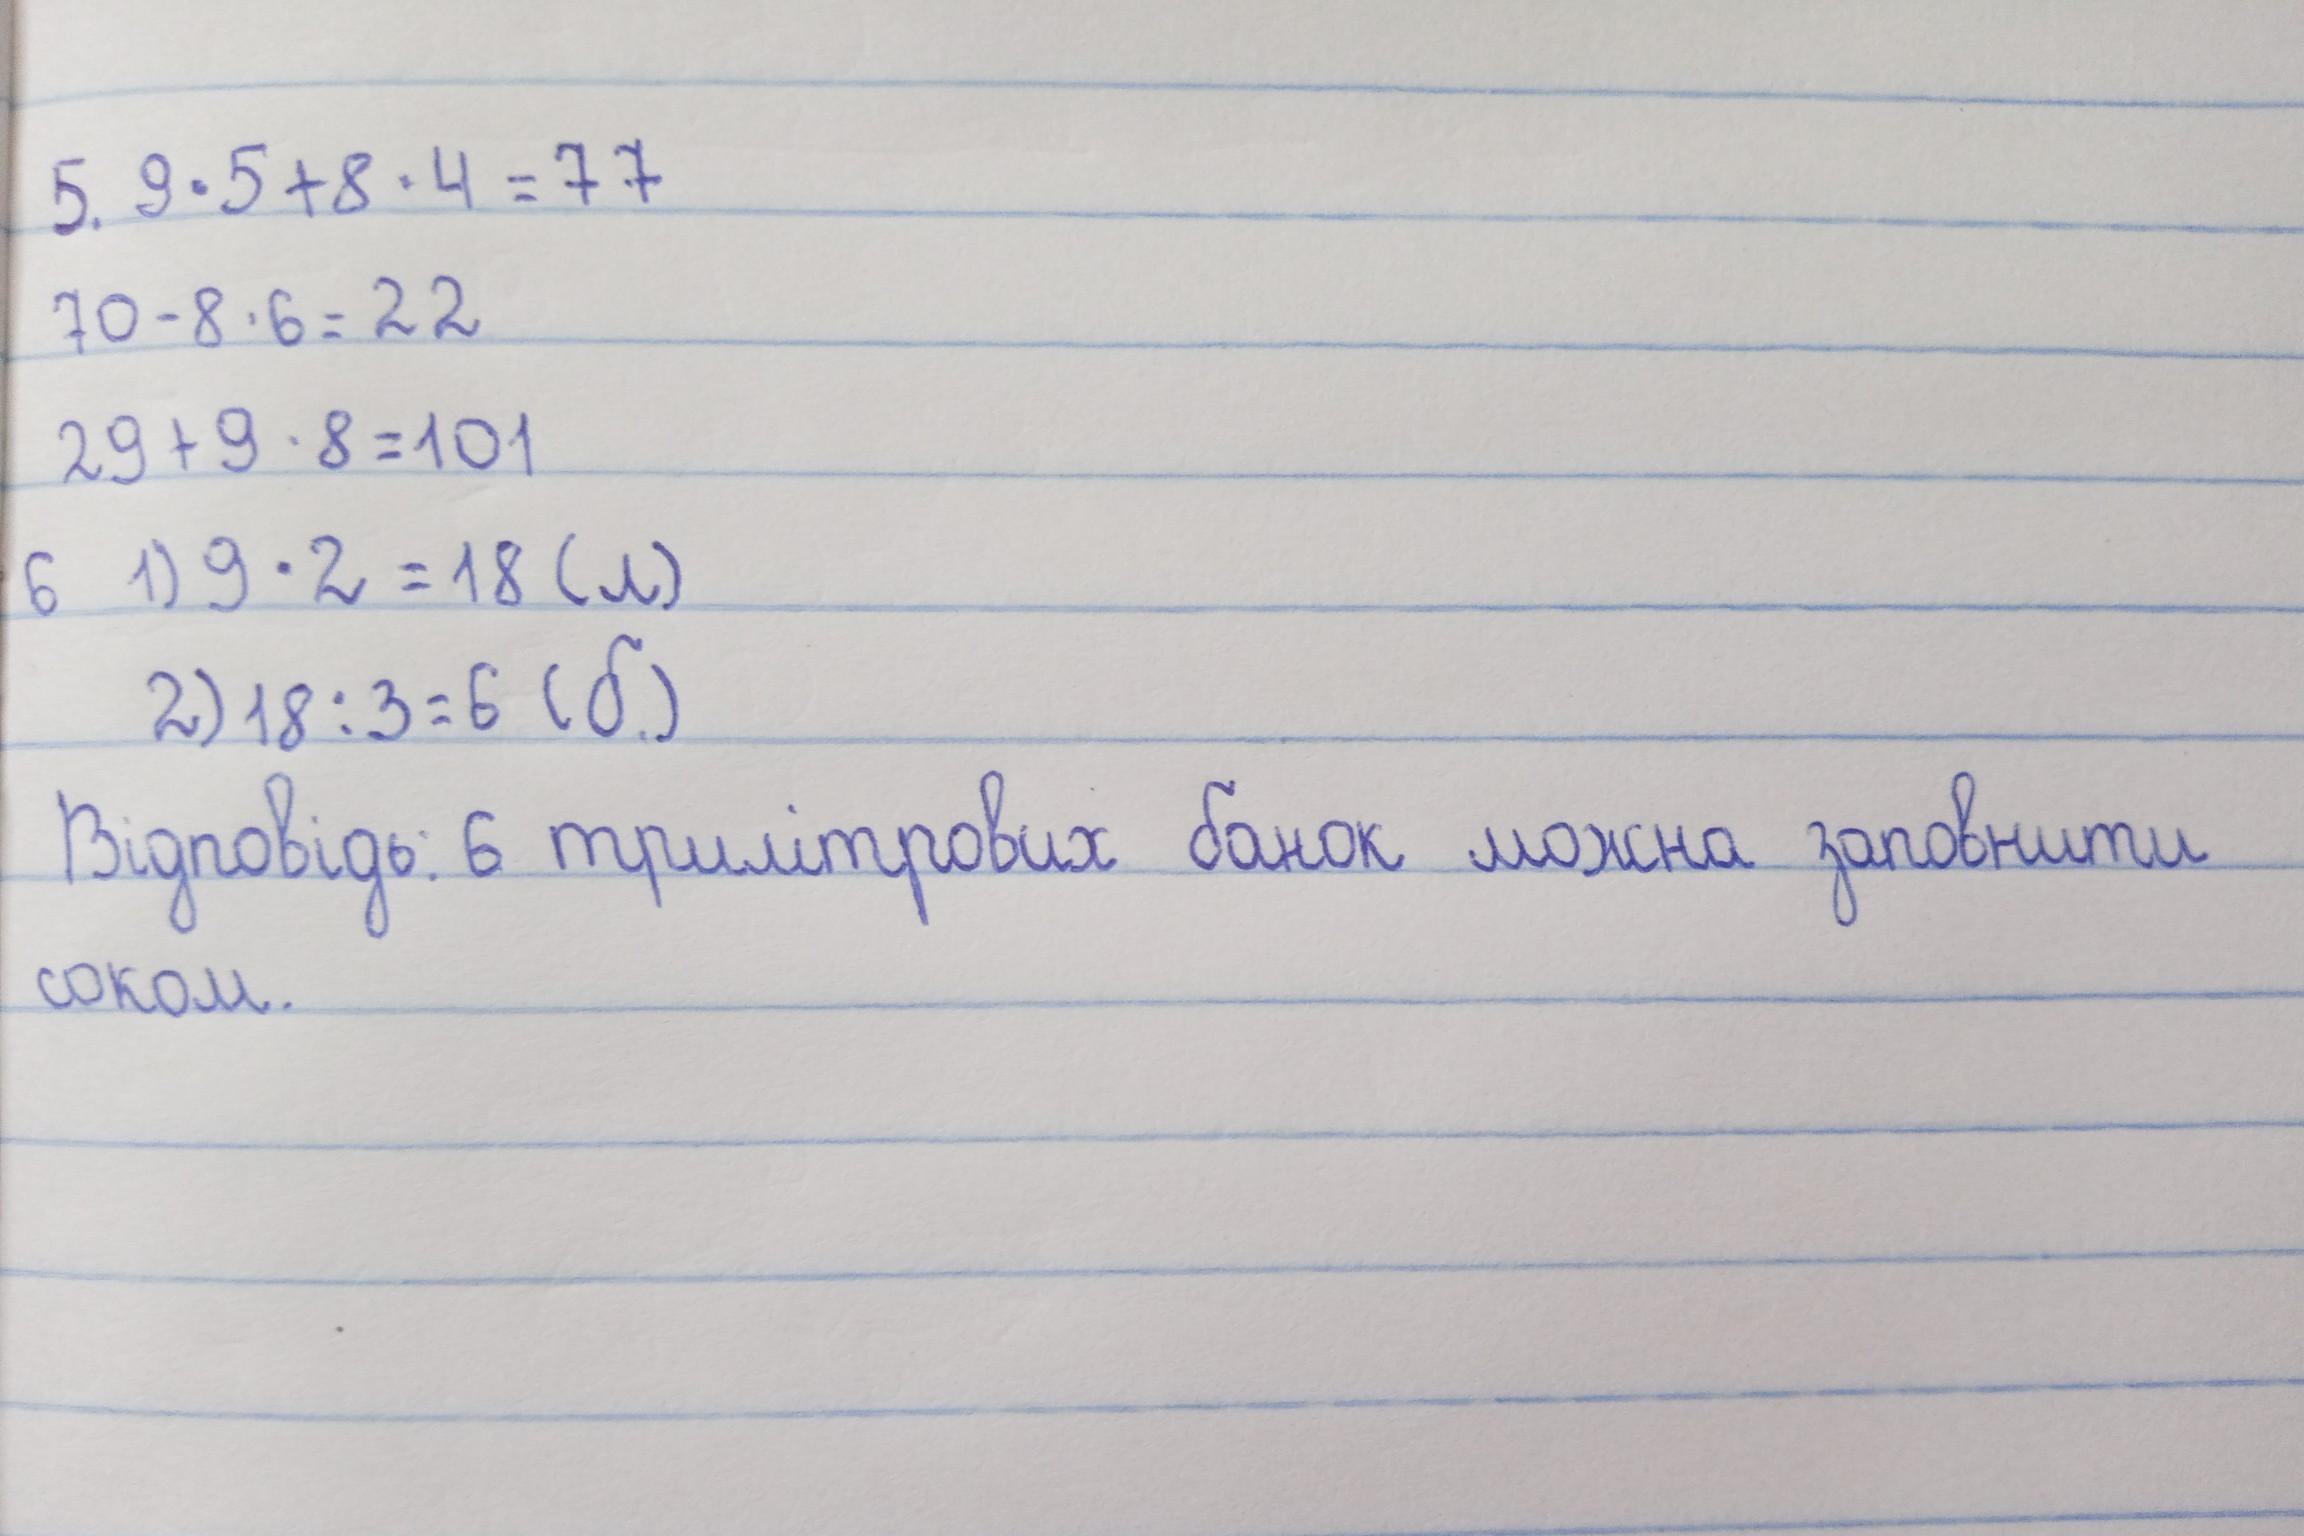 5. 9·5+8·4=77
70-8·6=22
29+9·8=101
6 1) 9·2=18 (л)
2) 18:3=6 (б.)
Відповідь: 6 трилітрових банок можна заповнити
соком.